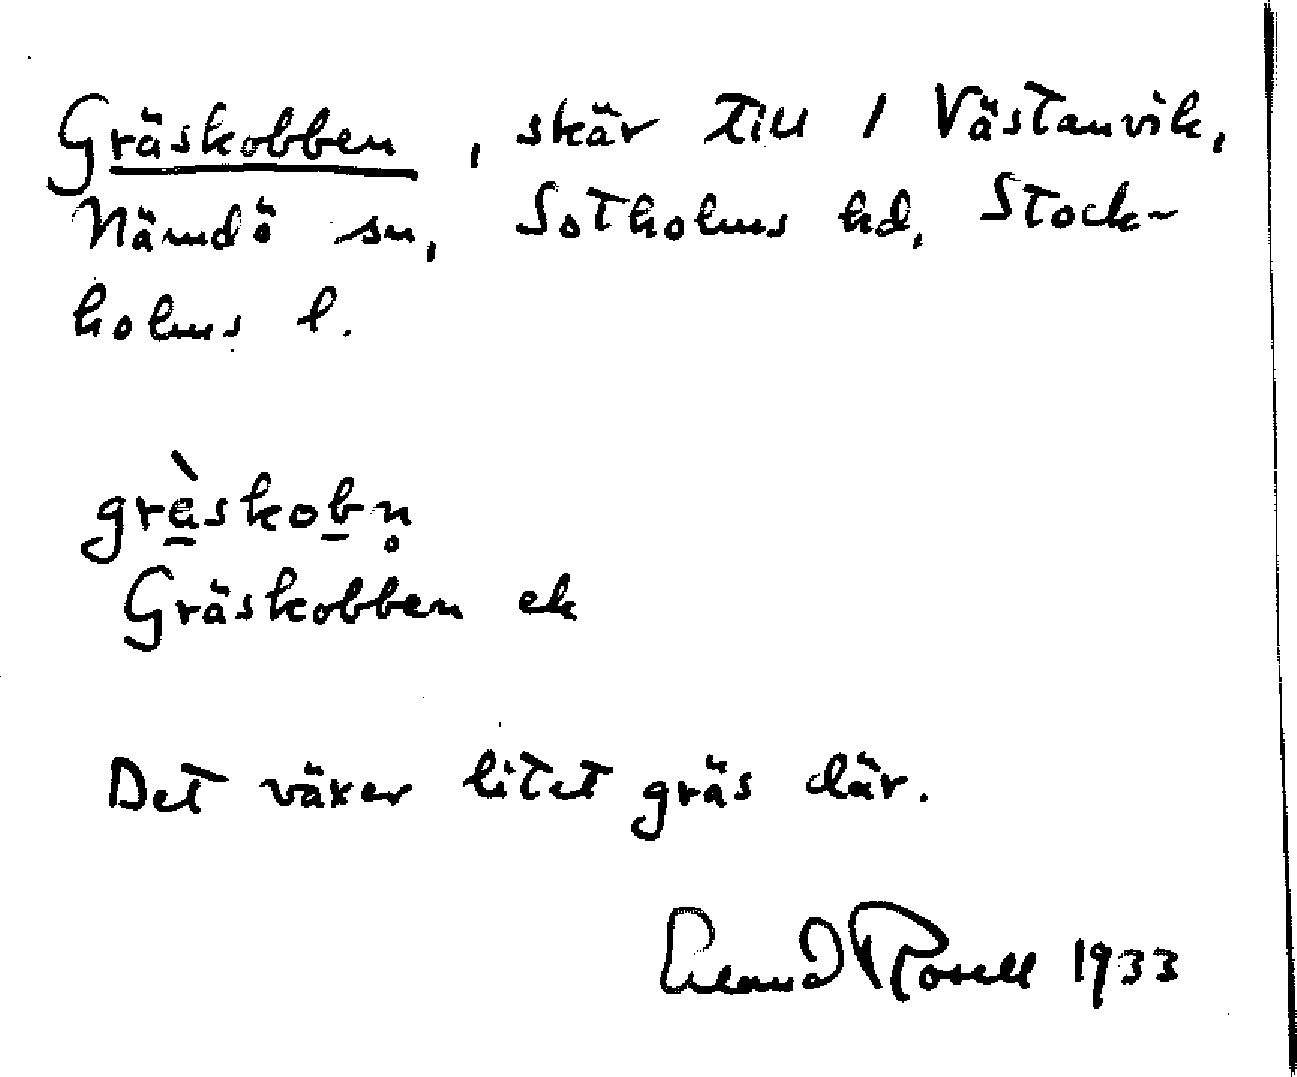 Gräskobben, skär till 1 Västanvik,
Nämdö sn, Sotholms hd, Stock-
holms l.
grä̀skob̲n̥
Gräskobben ek
Det växer litet gräs där.
Erland Rosell 1933